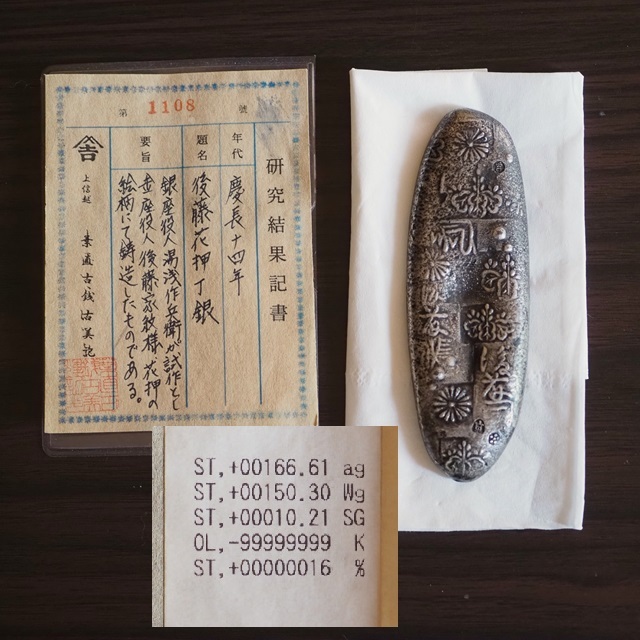 研究結果記書
第 1108 號
年代 慶長十四年
題名 後藤花押丁銀
要旨 銀座役人湯浅作兵衛が試作とし
金座役人後藤家紋様花押の
絵柄にて鋳造したものである。
上信越
ST,+00166.61 ag
ST,+00150.30 Wg
ST,+00010.21 SG
OL,-99999999 K
ST,+00000016 %